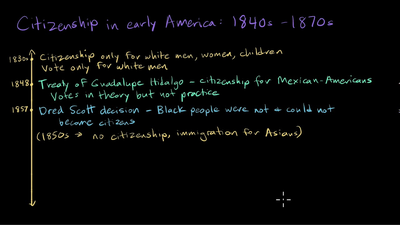 Citizenship in early America: 1840s - 1870s
1830s Citizenship only for white men, women, children
Vote only for white men
1848 Treaty of Guadalupe Hidalgo - citizenship for Mexican-Americans
Votes in theory but not practice
1857 Dred Scott decision - Black people were not & could not
become citizens
(1850s → no citizenship, immigration for Asians)